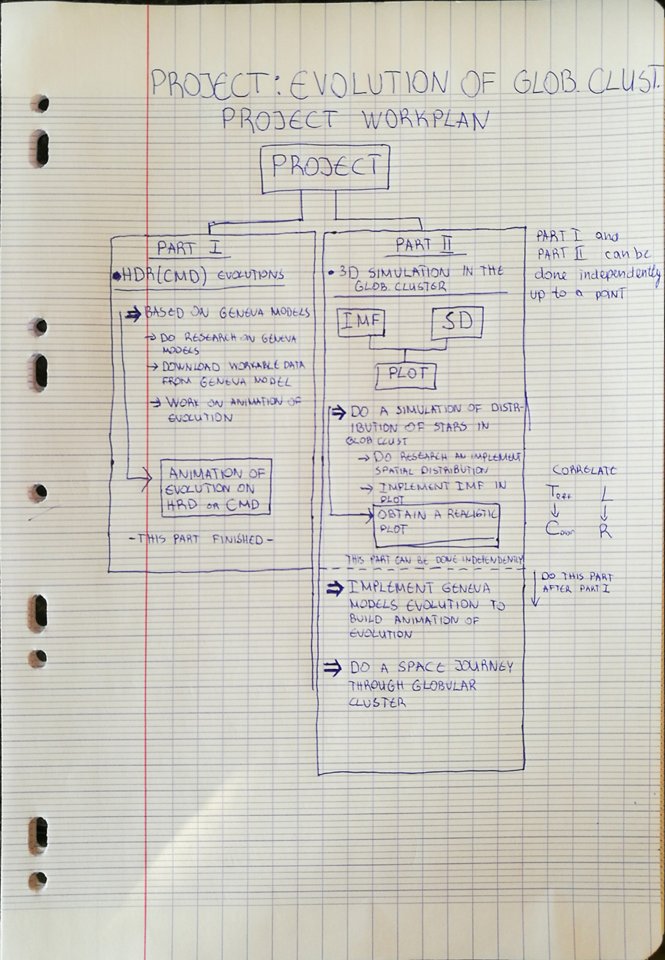 PROJECT: EVOLUTION OF GLOB. CLUST.
PROJECT WORKPLAN
PROJECT
PART I
• HDR(CMD) EVOLUTIONS
⇒ BASED ON GENEVA MODELS
→ DO RESEARCH ON GENEVA
MODELS
→ DOWNLOAD WORKABLE DATA
FROM GENEVA MODEL
→ WORK ON ANIMATION OF
EVOLUTION
ANIMATION OF
EVOLUTION ON
HRD or CMD
- THIS PART FINISHED -
PART II
• 3D SIMULATION IN THE
GLOB. CLUSTER
IMF
SD
PLOT
⇒ DO A SIMULATION OF DISTR-
IBUTION OF STARS IN
GLOB CLUST
→ DO RESEARCH AN IMPLEMENT
SPATIAL DISTRIBUTION
→ IMPLEMENT IMF IN
PLOT
OBTAIN A REALISTIC
PLOT
THIS PART CAN BE DONE INDEPENDENTLY
⇒ IMPLEMENT GENEVA
MODELS EVOLUTION TO
BUILD ANIMATION OF
EVOLUTION
⇒ DO A SPACE JOURNEY
THROUGH GLOBULAR
CLUSTER
PART I and
PART II can be
done independently
up to a point
CORRELATE
Teff L
↓ ↓
Color R
↓ DO THIS PART
AFTER PART I